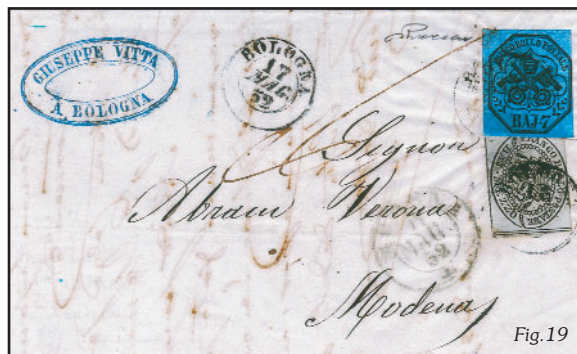 GIUSEPPE VITTA
A BOLOGNA
BOLOGNA
17
MAG.
52
BAJ. 7
Signor
Abram Verona
MAG.
52
Modena
Fig.19